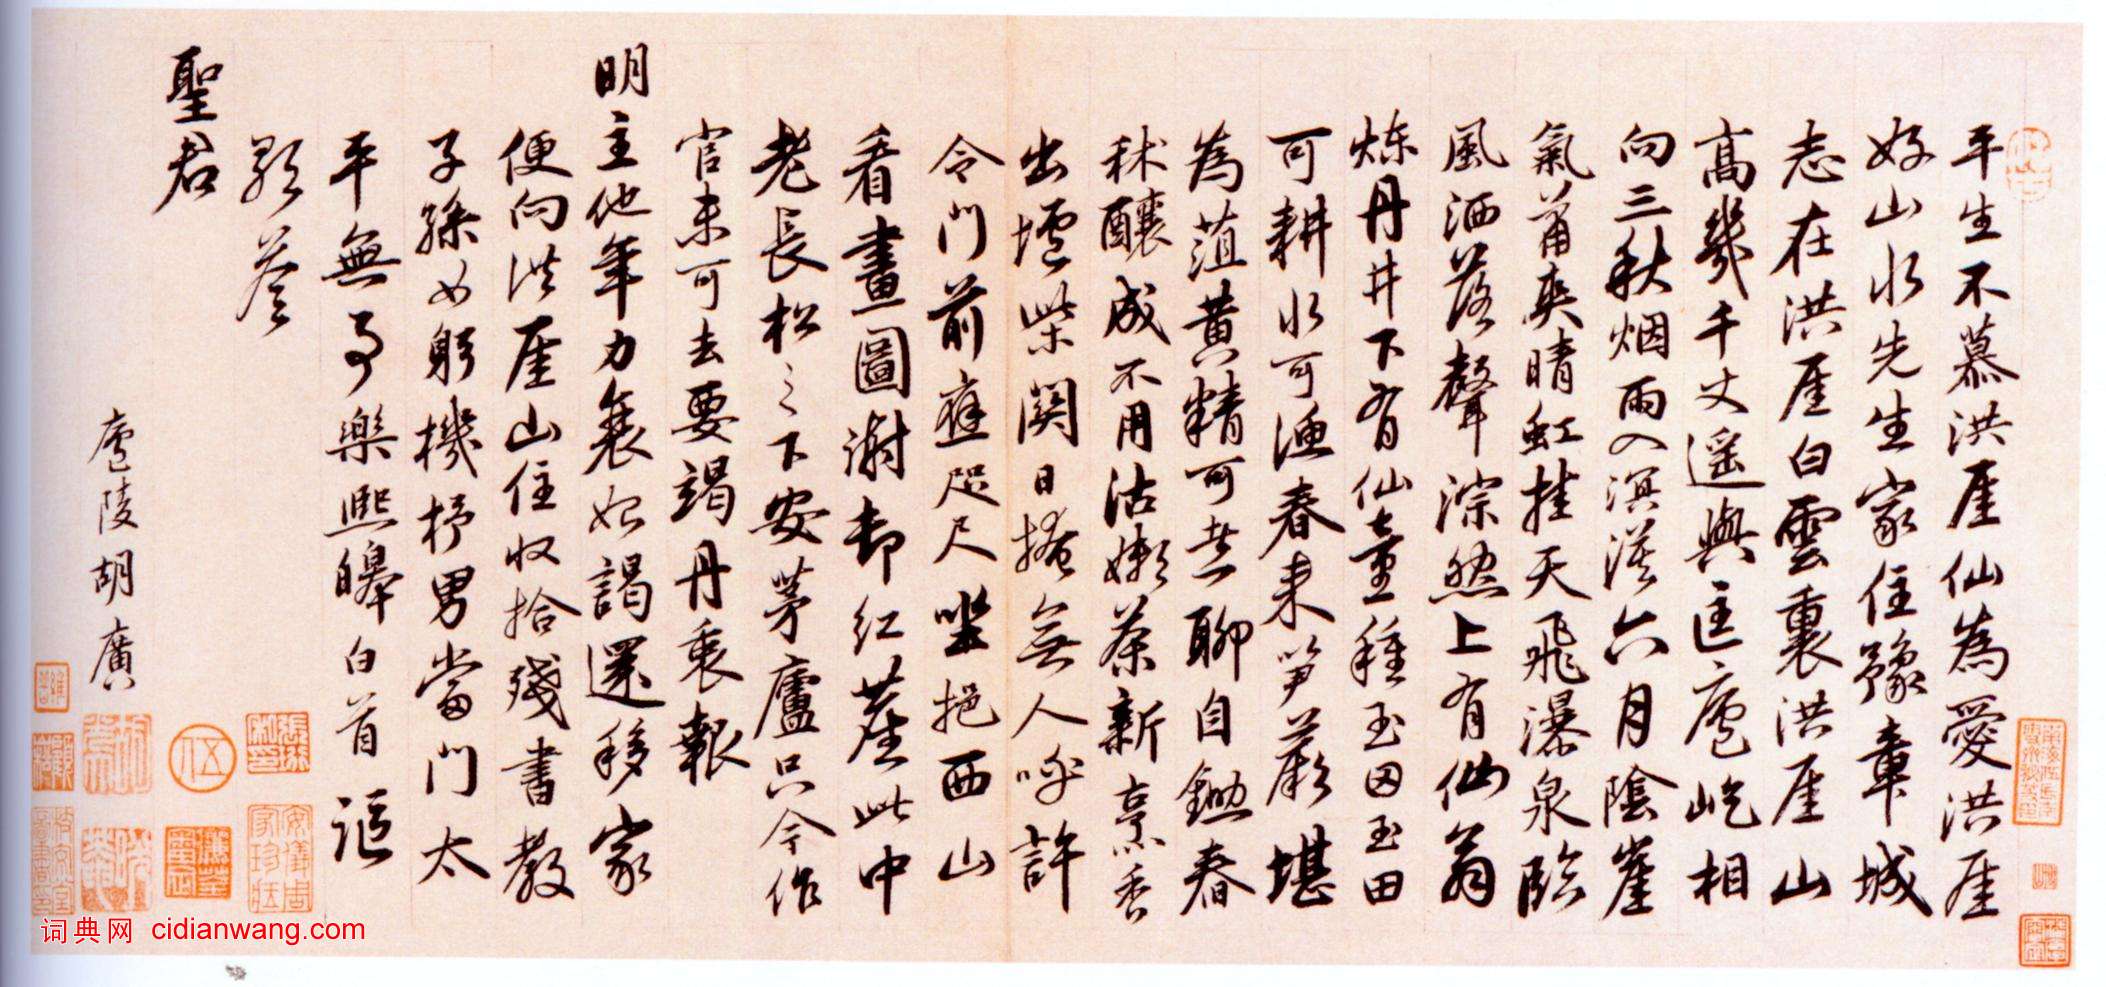 平生不慕洪厓仙為愛洪厓
好山水先生家住豫章城
志在洪厓白雲裏洪厓山
高幾千丈遥與匡廬屹相
向三秋烟雨入溟濛六月陰崖
氣萧爽晴虹挂天飛瀑泉臨
風洒落聲淙然上有仙翁
煉丹井下有仙童種玉田玉田
可耕水可漁春来笋蕨堪
為菹黄精可煮聊自鋤春
秫釀成不用沽嫩茶新烹香
出壚柴関日掩無人呼許
令門前應咫尺坐挹西山
看畫圖謝却紅塵此中
老長松〻下安茅廬只今作
官未可去要竭丹衷報
明主他年力衰始謁還移家
便向洪厓山住收拾殘書教
子孫女躬機杼男當門太
平無事樂熙皞白首謳
歌荅
聖君
廬陵胡廣
词典网 cidianwang.com